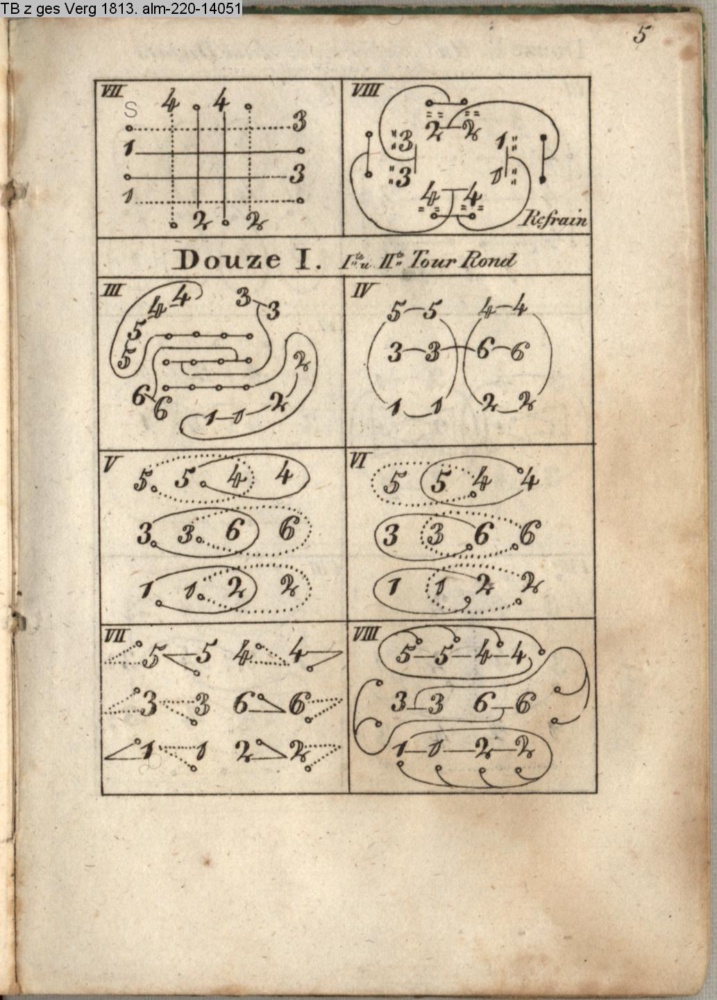 TB z ges Verg 1813. alm-220-14051
5
VII
S 4 4
3
1
3
1
2 2
VIII
2 2
3 1
3 1
4 4
Refrain
Douze I. Ite u IIte Tour Rond
III
4 4 3 3
5
5
2
6 6
1 1 2
IV
5 5 4 4
3 3 6 6
1 1 2 2
V
5 5 4 4
3 3 6 6
1 1 2 2
VI
5 5 4 4
3 3 6 6
1 1 2 2
VII
5 5 4 4
3 3 6 6
1 1 2 2
VIII
5 5 4 4
3 3 6 6
1 1 2 2